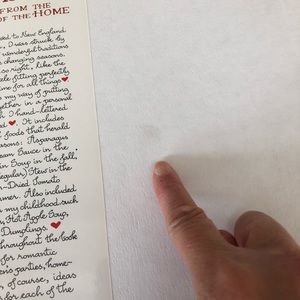 FROM THE
OF THE HOME
ed to New England
, I was struck by
wonderful traditions
changing seasons.
so right, like the
le fitting perfectly
me for all things
s my way of putting
ether in a personal
I hand-lettered
d. It includes
foods that herald
asons: Asparagus
eam Sauce in the
in Soup in the fall,
egular) Stew in the
n-Dried Tomato
mmer. Also included
my childhood-such
, Hot Apple Soup,
Dumplings.
throughout the book
for romantic
ens parties, home-
of course, ideas
s for each of the